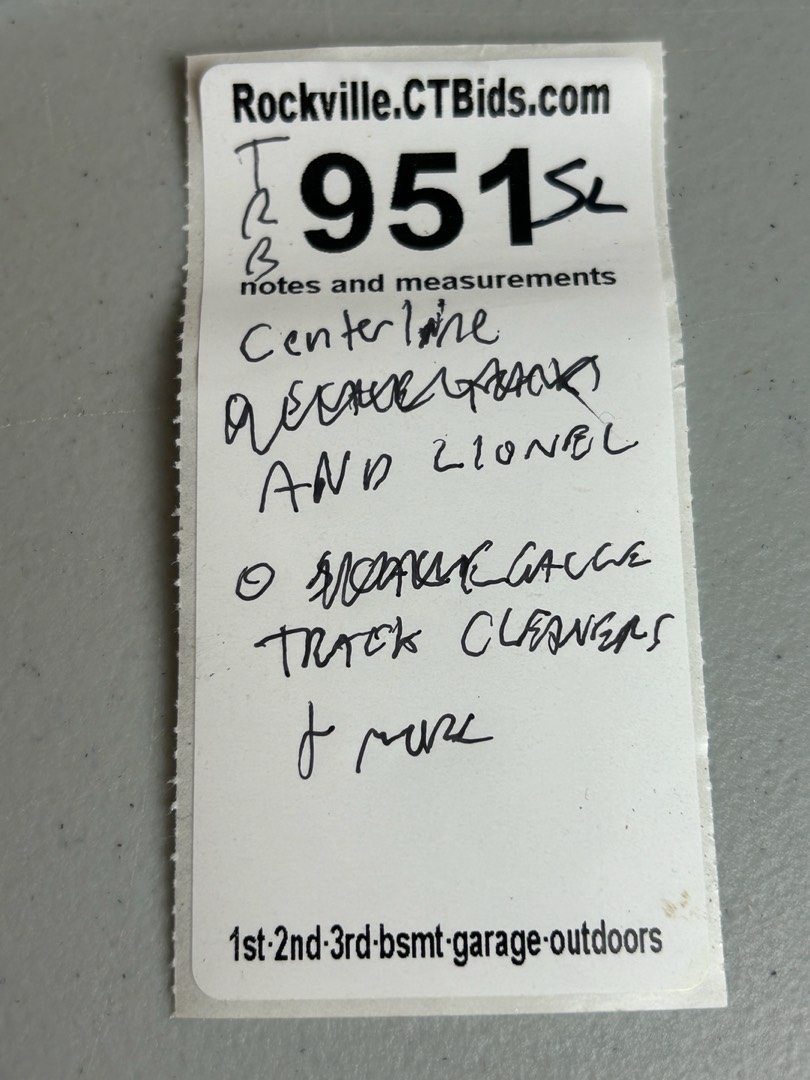 Rockville.CTBids.com
TRB 951 SL
notes and measurements
Centerline
AND LIONEL
O GAUGE
TRACK CLEANERS
+ MORE
1st·2nd·3rd·bsmt·garage·outdoors